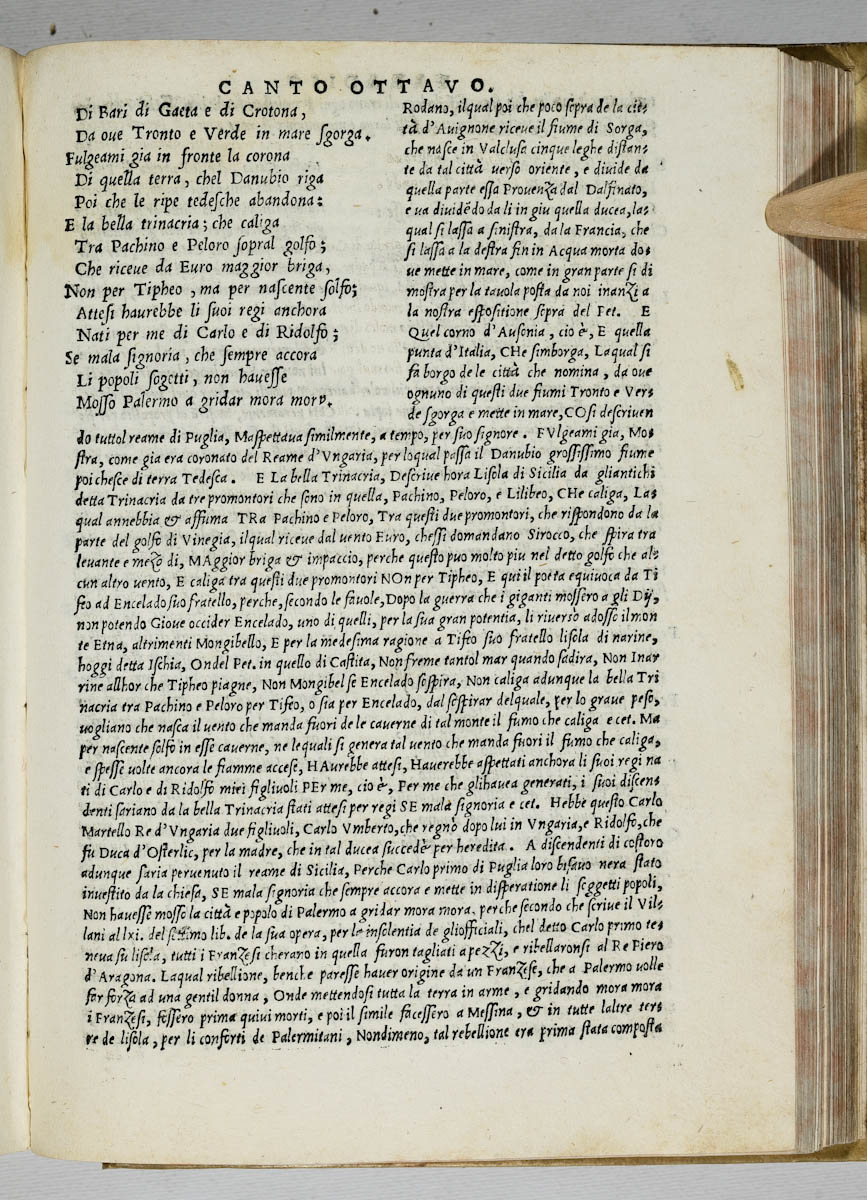 CANTO OTTAVO.
Di Bari di Gaeta e di Crotona,
Da oue Tronto e Verde in mare sgorga.
Fulgeami gia in fronte la corona
Di quella terra, chel Danubio riga
Poi che le ripe tedesche abandona:
E la bella trinacria; che caliga
Tra Pachino e Peloro sopral golfo;
Che riceue da Euro maggior briga,
Non per Tipheo, ma per nascente solfo;
Attesi haurebbe li suoi regi anchora
Nati per me di Carlo e di Ridolfo;
Se mala signoria, che sempre accora
Li popoli sogetti, non hauesse
Mosso Palermo a gridar mora mora.
Rodano, ilqual poi che poco sopra de la cit-
tà d'Auignone riceue il fiume di Sorga,
che nasce in Valclusa cinque leghe distan-
te da tal città verso oriente, e diuide da
quella parte essa Prouenza dal Dalfinato,
e ua diuidēdo da li in giu quella ducea, la-
qual si lassa a sinistra, da la Francia, che
si lassa a la destra fin in Acqua morta do-
ue mette in mare, come in gran parte si di
mostra per la tauola posta da noi inanzi a
la nostra espositione sopra del Pet. E
Quel corno d'Ausonia, cio è, E quella
punta d'Italia, CHe simborga, Laqual si
fa borgo de le città che nomina, da oue
ognuno di questi due fiumi Tronto e Ver-
de sgorga e mette in mare, COsi descriuen
do tuttol reame di Puglia, Maspettaua similmente, a tempo, per suo signore. FVlgeami gia, Mo-
stra, come gia era coronato del Reame d'Vngaria, per loqual passa il Danubio grossissimo fiume
poi chesce di terra Tedesca. E La bella Trinacria, Descriue hora Lisola di Sicilia da gliantichi
detta Trinacria da tre promontori che sono in quella, Pachino, Peloro, e Lilibeo, CHe caliga, La-
qual annebbia & affuma TRa Pachino e Peloro, Tra questi due promontori, che rispondono da la
parte del golfo di Vinegia, ilqual riceue dal vento Euro, chessi domandano Sirocco, che spira tra
leuante e mezo di, MAggior briga & impaccio, perche questo puo molto piu nel detto golfo che al-
cun altro vento, E caliga tra questi due promontori NOn per Tipheo, E qui il poeta equiuoca da Ti
feo ad Encelado suo fratello, perche, secondo le fauole, Dopo la guerra che i giganti mossero a gli Dij,
non potendo Gioue occider Encelado, uno di quelli, per la sua gran potentia, li riuersò adosso il mon
te Etna, altrimenti Mongibello, E per la medesima ragione a Tifeo suo fratello lisola di narine,
hoggi detta Ischia, Ondel Pet. in quello di Castita, Non freme tantol mar quando sadira, Non Inar
rine allhor che Tipheo piagne, Non Mongibel se Encelado sospira, Non caliga adunque la bella Tri
nacria tra Pachino e Peloro per Tifeo, o sia per Encelado, dal sospirar delquale, per lo graue peso,
uogliano che nasca il uento che manda fuori de le cauerne di tal monte il fumo che caliga e cet. Ma
per nascente solfo in esse cauerne, ne lequali si genera tal vento che manda fuori il fumo che caliga,
e spesse volte ancora le fiamme accese, HAurebbe attesi, Hauerebbe aspettati anchora li suoi regi na
ti di Carlo e di Ridolfo miei figliuoli PEr me, cio è, Per me che glihauea generati, i suoi discen-
denti sariano da la bella Trinacria stati attesi per regi SE mala signoria e cet. Hebbe questo Carlo
Martello Re d'Vngaria due figliuoli, Carlo Vmberto, che regnò dopo lui in Vngaria, e Ridolfo, che
fu Duca d'Osterlic, per la madre, che in tal ducea succedè per heredita. A discendenti di costoro
adunque saria peruenuto il reame di Sicilia, Perche Carlo primo di Puglia loro bisauo nera stato
inuestito da la chiesa, SE mala signoria che sempre accora e mette in disperatione li soggetti popoli,
Non hauesse mosso la città e popolo di Palermo a gridar mora mora, perche secondo che scriue il Vil-
lani al lxi. del settimo lib. de la sua opera, per le insolentia de gliofficiali, chel detto Carlo primo te-
neua su lisola, tutti i Franzesi cherano in quella furon tagliati a pezzi, e ribellaronsi al Re Piero
d'Aragona. Laqual ribellione, benche paresse hauer origine da un Franzese, che a Palermo volle
far forza ad una gentil donna, Onde mettendosi tutta la terra in arme, e gridando mora mora
i Franzesi, fossero prima quiui morti, e poi il simile facessero a Messina, & in tutte laltre ter-
re de lisola, per li conforti de Palermitani, Nondimeno, tal rebellione era prima stata composta